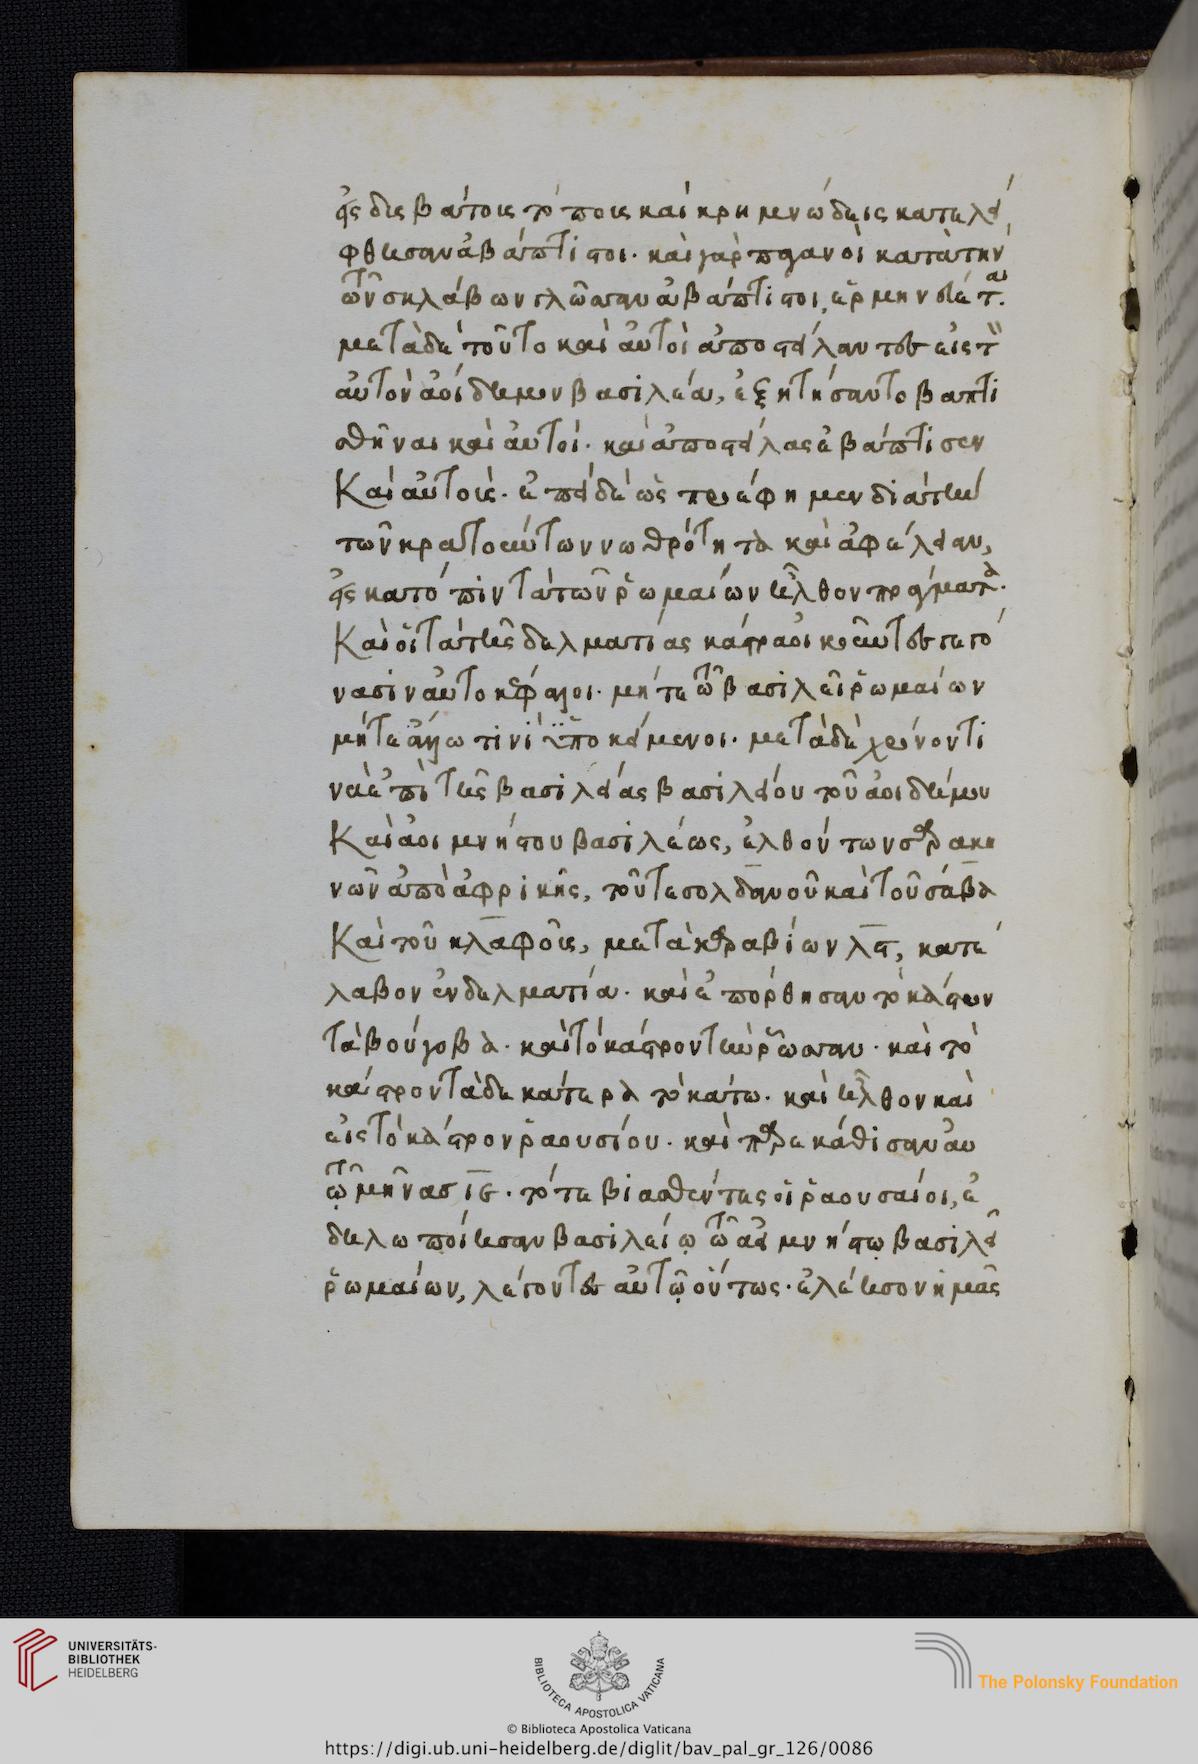 εἰς δυσβάτοις τόποις καὶ κρημνώδεις κατελεί
φθησαν ἀβάπτιστοι. καὶ γὰρ παγανοὶ κατὰ τὴν
τῶν σκλάβων γλῶσσαν ἀβάπτιστοι, ἑρμηνεύεται.
μετὰ δὲ τοῦτο καὶ αὐτοὶ ἀποστείλαντες εἰς τὸν
αὐτὸν ἀοίδημον βασιλέα, ἐξητήσαντο βαπτι
σθῆναι καὶ αὐτοί. καὶ ἀποστείλας ἐβάπτισεν
Καὶ αὐτούς. ἐπεὶ δὲ ὡς προέφημεν διὰ τὴν
τῶν κρατούντων νωθρότητα καὶ ἀφέλειαν,
εἰς κατόπιν τὰ τῶν ῥωμαίων ἦλθον πράγματα.
Καὶ οἱ τὰ τῆς δελματίας κάστρα οἰκοῦντες γεγό
νασιν αὐτοκέφαλοι. μήτε τῶ βασιλεῖ ῥωμαίων
μήτε ἄλλω τινὶ ὑποκείμενοι. μετὰ δὲ χρόνον τι
νὰ ἐπὶ τῆς βασιλείας βασιλείου τοῦ ἀοιδήμου
Καὶ ἀοιμνήστου βασιλέως, ἐλθόντων σαρακη
νῶν ἀπὸ ἀφρικῆς, τοῦ τε σολδανοῦ καὶ τοῦ σάβα
Καὶ τοῦ κλαφοῦς, μετὰ καραβίων λϛ, κατέ
λαβον ἐν δελματία. καὶ ἐπόρθησαν τὸ κάστρον
τὰ βούτοβα. καὶ τὸ κάστρον τὴν ῥῶσσαν. καὶ τὸ
κάστρον τὰ δεκάτερα τὸ κάτω. καὶ ἦλθον καὶ
εἰς τὸ κάστρον ῥαουσίου. καὶ παρεκάθισαν αὐ
τῷ μῆνας ιε. τότε βιασθέντες οἱ ῥαουσαῖοι, ἐ
δηλωποίησαν βασιλείῳ τῶ ἀειμνήστῳ βασιλεῖ
ῥωμαίων, λέγοντες αὐτῷ οὕτως. ἐλέησον ἡμᾶς
UNIVERSITÄTS-
BIBLIOTHEK
HEIDELBERG
BIBLIOTECA APOSTOLICA VATICANA
The Polonsky Foundation
© Biblioteca Apostolica Vaticana
https://digi.ub.uni-heidelberg.de/diglit/bav_pal_gr_126/0086